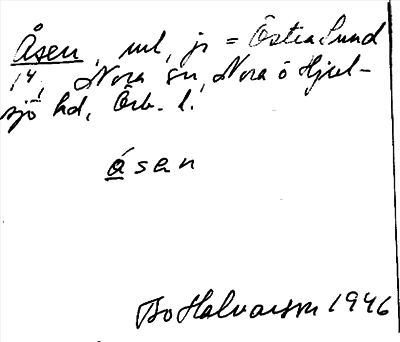 Åsen, ml, jr = Östra Sund
1⁴, Nora sn, Nora o Hjul-
sjö hd, Örb. l.
åsen
Bo Halvarson 1946